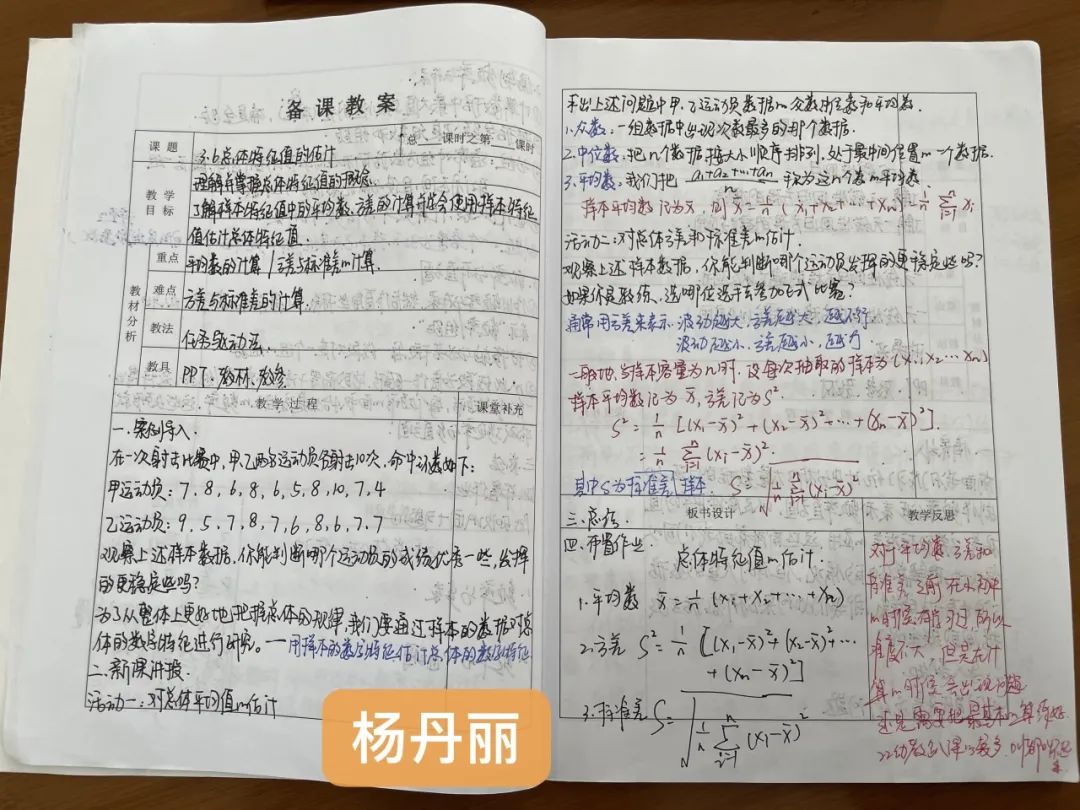 备课教案
课题 3.6总体特征值的估计 总 课时之第 课时
教学目标 理解并掌握总体特征值的概念.
了解样本特征值中的平均数.方差的计算并能会使用样本特征
值估计总体特征值.
教材分析
重点 平均数的计算/方差与标准差的计算.
难点 方差与标准差的计算.
教法 任务驱动法.
教具 PPT.教材.教参.
教学过程 课堂补充
一.案例导入.
在一次射击比赛中,甲乙两名运动员各射击10次,命中环数如下:
甲运动员:7、8、6、8、6、5、8、10、7、4
乙运动员:9、5、7、8、7、6、8、6、7、7
观察上述样本数据,你能判断哪个运动员的成绩优秀一些,发挥
的更稳定些吗?
为了从整体上更好地把握总体的规律,我们要通过样本的数据对总
体的数字特征进行研究。——用样本的数字特征估计总体的数字特征
二.新课讲授.
活动一:对总体平均值的估计
求出上述问题中甲、乙运动员数据的众数中位数和平均数.
1.众数:一组数据中出现次数最多的那个数据.
2.中位数:把n个数据按大小顺序排列,处于最中间位置的一个数据.
3.平均数:我们把 (a₁+a₂+…+aₙ)/n 称为这n个数的平均数.
样本平均数记为x̄,则 x̄=1/n(x₁+x₂+…+xₙ)=1/n ∑ᵢ₌₁ⁿ xᵢ
活动二:对总体方差和标准差的估计.
观察上述样本数据,你能判断哪个运动员发挥的更稳定些吗?
如果你是教练,选哪位选手去参加正式比赛?
通常用方差来表示.波动越大,方差越大,越不行
波动越小,方差越小,越行
一般地,当样本容量为n时,设每次抽取的样本为(x₁,x₂…xₙ)
样本平均数记为x̄,方差记为S².
S²=1/n[(x₁-x̄)²+(x₂-x̄)²+…+(xₙ-x̄)²].
=1/n ∑ᵢ₌₁ⁿ(xᵢ-x̄)².
其中S为标准差 样本 S=√(1/n ∑ᵢ₌₁ⁿ(xᵢ-x̄)²)
三.总结.
四.布置作业.
板书设计 教学反思
总体特征值的估计.
1.平均数 x̄=1/n(x₁+x₂+…+xₙ)
2.方差 S²=1/n[(x₁-x̄)²+(x₂-x̄)²+…
+(xₙ-x̄)²]
3.标准差 S=√(1/n ∑ᵢ₌₁ⁿ(xᵢ-x̄)²)
对于平均数.方差和
标准差之前在初中
的时候有学过所以
难度不大,但是在计
算的时候会出现问题
还是需要把最基本的算
杨丹丽